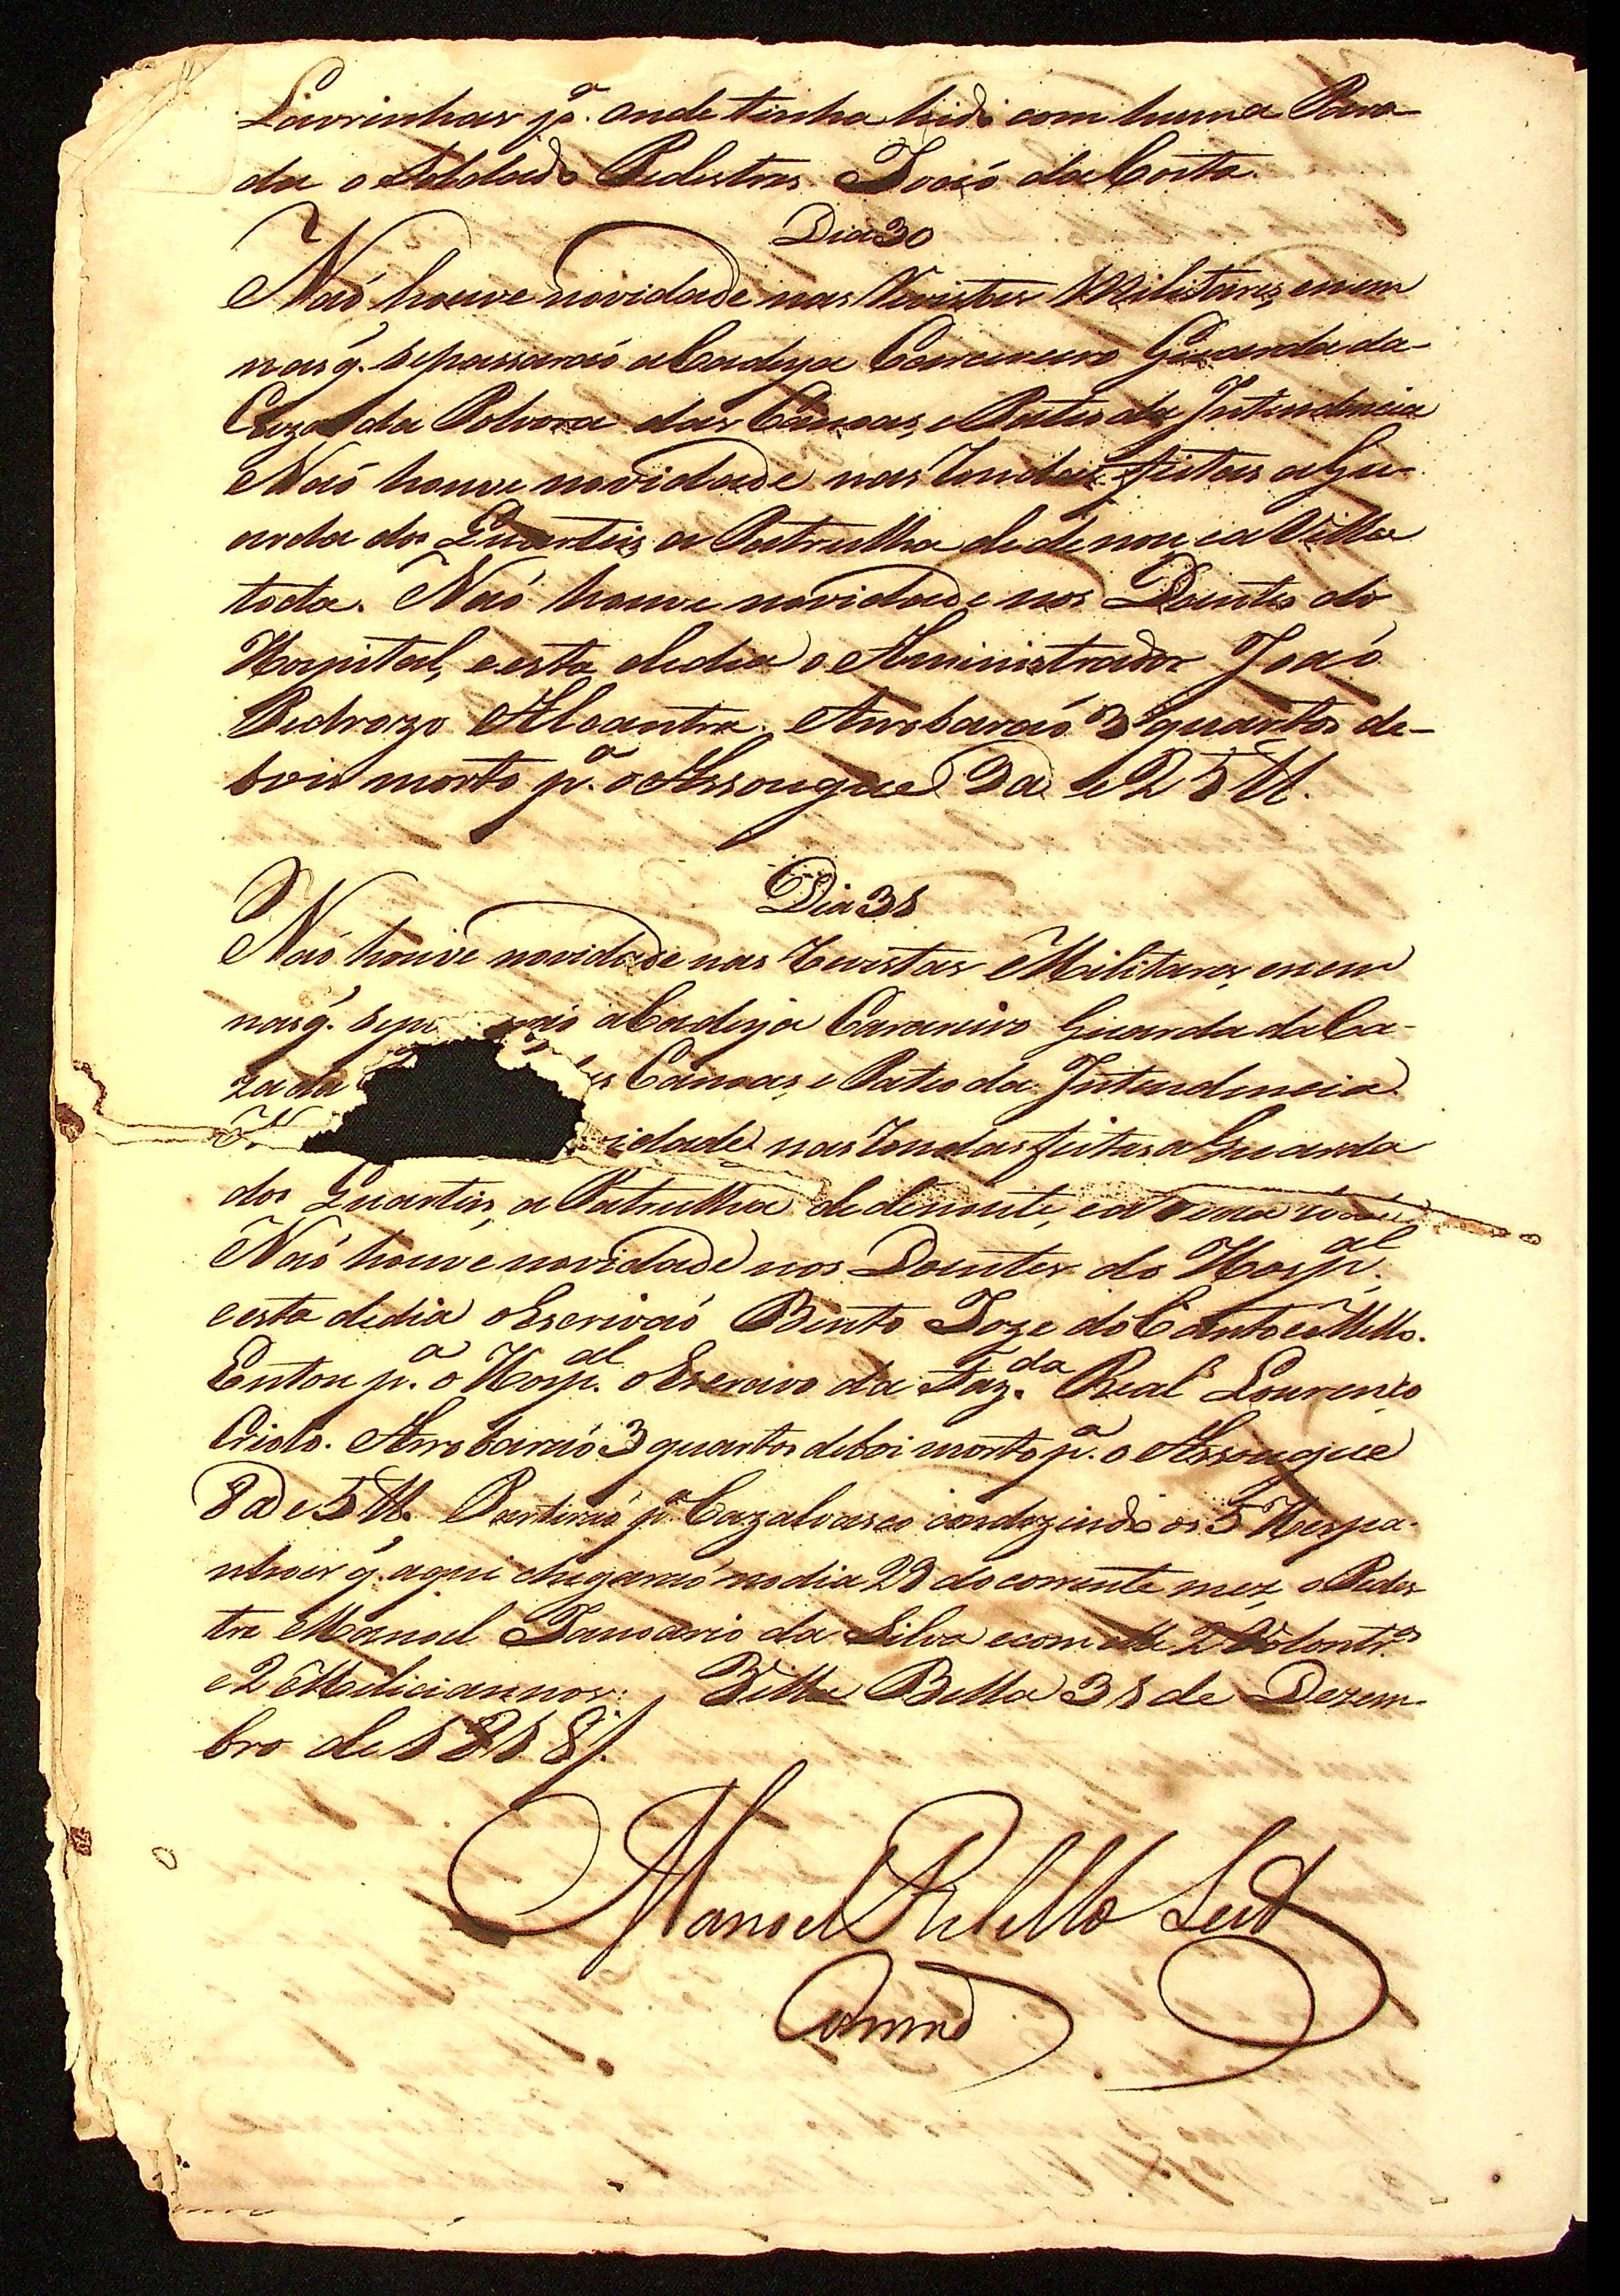 Lavrinhas pª. onde tinha hido com huma Para-
da o Soldado Pedestres Joaó da Costa.
Dia 30
Naó houve novidade nas Revistas Militares, enem
nas q. se passaraó a Cadeya Carcereiro Guarda da
Caza da Polvora das Canoas, e Pateo da Intendencia
Naó houve novidade nas Rondas feitas a Gu-
arda dos Quarteis, a Patrulha de denoute, ea Villa
toda. Naó houve novidade nos Doentes do
Hospital, e esta dedia o Aministrador Joaó
Pedrozo Alcantra. Arrobaraó 3 quartos de
boi morto pª. o Assougue 9 @ e 25 tt.
Dia 31
Naó houve novidade nas Revistas Militares, enem
nas q. sepa raó a Cadeya Carcereiro Guarda da Ca-
za da Canoas, e Pateo da Intendencia.
idade nas Rondas feitas a Guarda
dos Quarteis, a Patrulha de denoute, ea
Naó houve novidade nos Doentes do Hospal.
e esta dedia o Escrivaó Bento Joze do Canto e Mello.
Entou pª. o Hospal. o Escravo da Fazda. Real Lourenço
Criolo. Arrobaraó 3 quartos de boi morto pª. o Assougue
8 @ e 5 tt. Partiraó pª. Cazalvasco conduzindo os 5 Hespa-
nhoes q. aqui chegaraó no dia 29 do corrente mez, o Pedes
tre Manoel Januario da Silva e com elle 2 Volontros
e 2 Milicianos. Villa Bella 31 de Dezem-
bro de 1818 /.
Manoel Rebello Leite
Comme